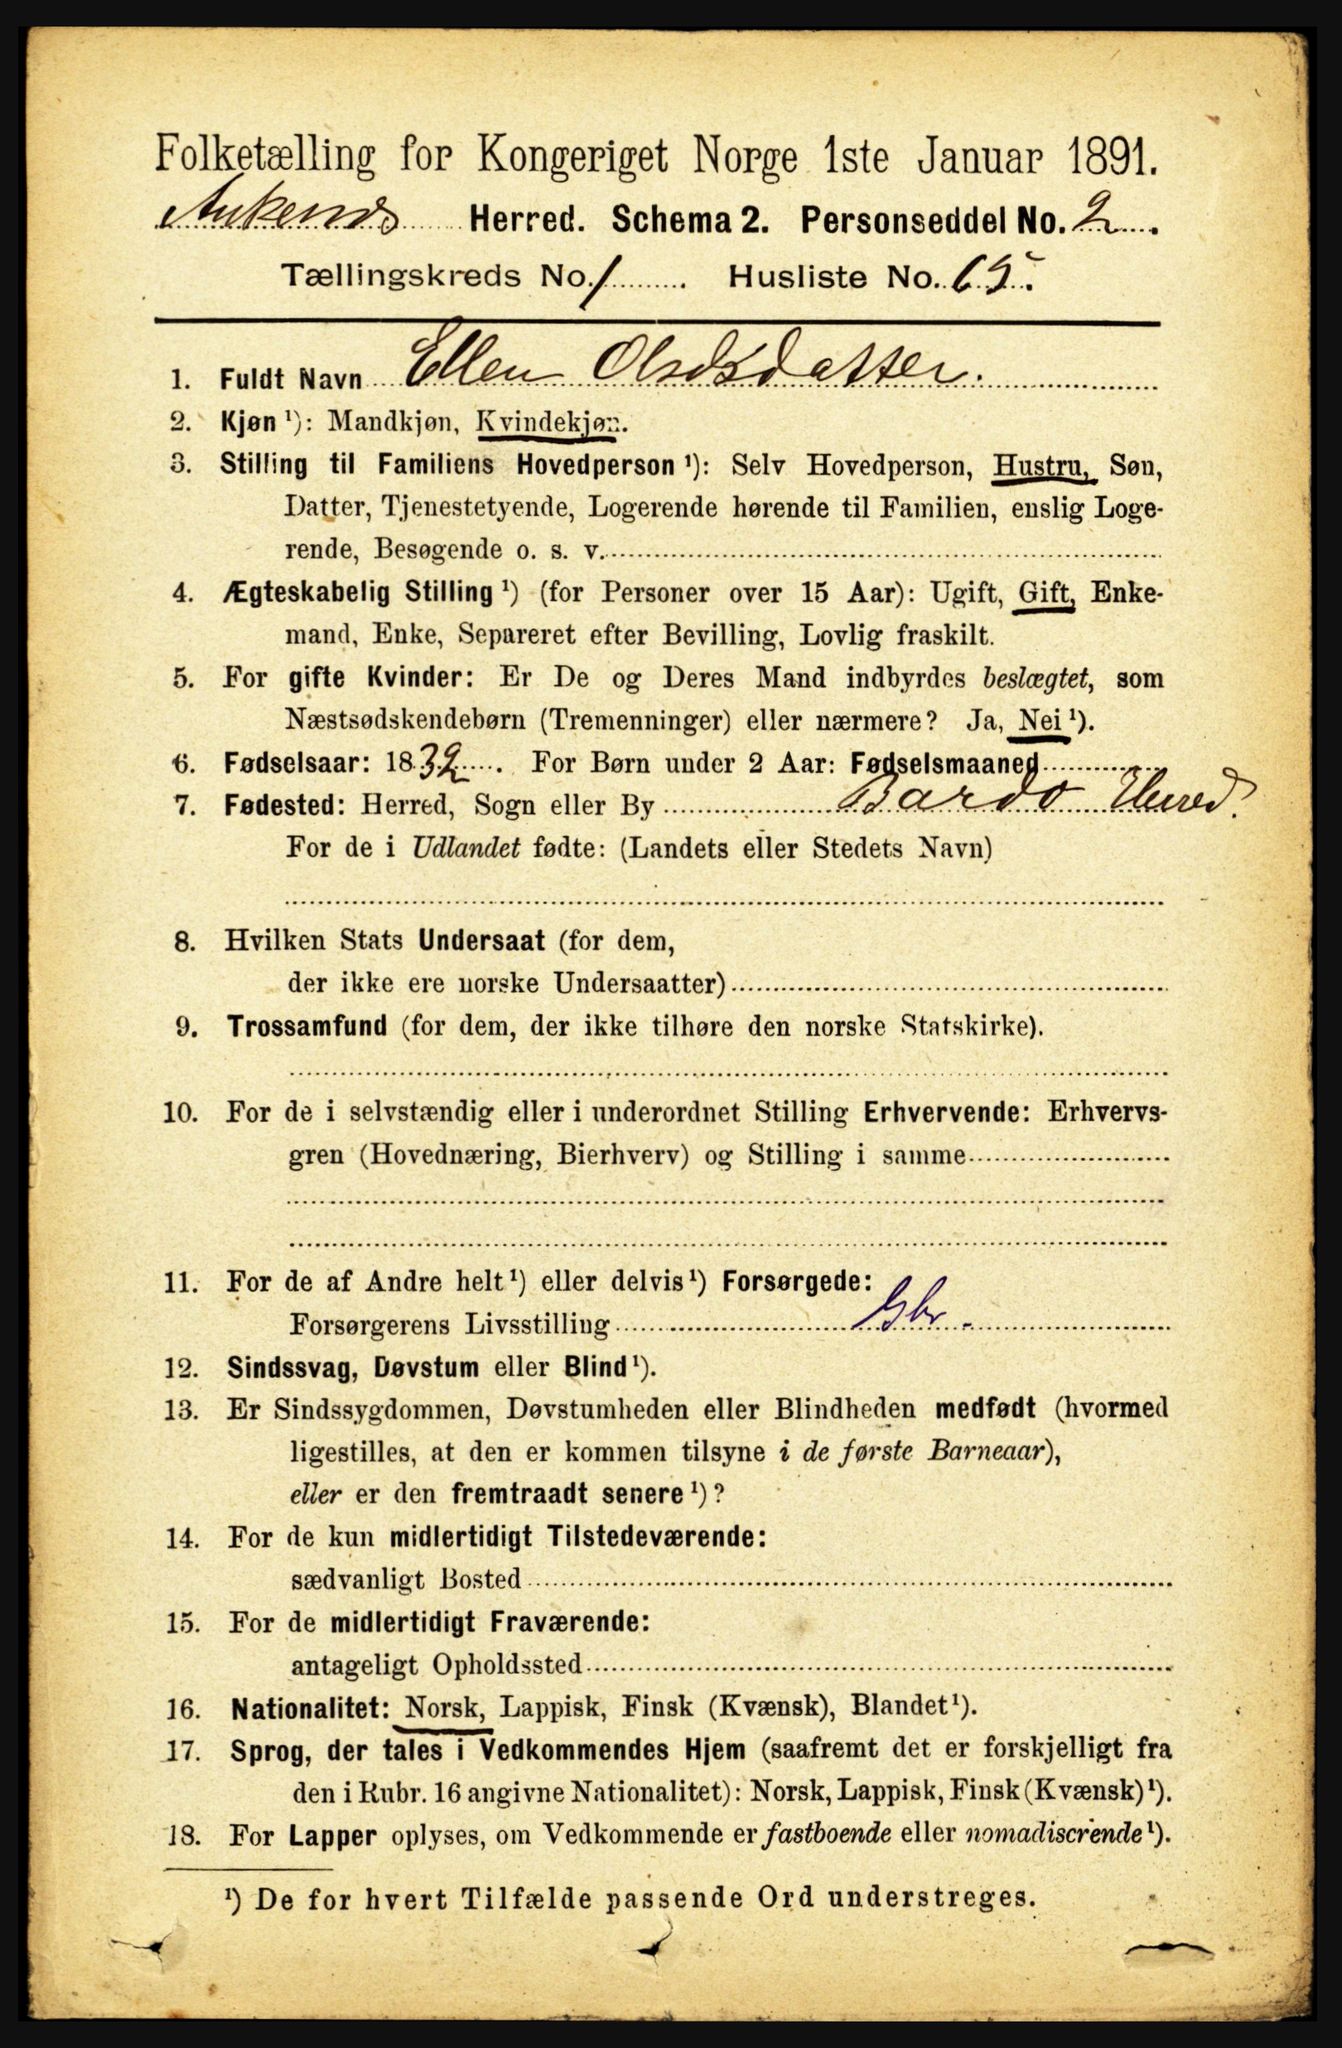 Folketælling for Kongeriget Norge 1ste Januar 1891.
Ankenes Herred. Schema 2. Personseddel No. 2.
Tællingskreds No. 1. Husliste No. 65.
1. Fuldt Navn Ellen Olsdsdatter.
2. Kjøn ¹): Mandkjøn, Kvindekjøn.
3. Stilling til Familiens Hovedperson ¹): Selv Hovedperson, Hustru, Søn,
Datter, Tjenestetyende, Logerende hørende til Familien, enslig Loge-
rende, Besøgende o. s. v.
4. Ægteskabelig Stilling ¹) (for Personer over 15 Aar): Ugift, Gift, Enke-
mand, Enke, Separeret efter Bevilling, Lovlig fraskilt.
5. For gifte Kvinder: Er De og Deres Mand indbyrdes beslægtet, som
Næstsødskendebørn (Tremenninger) eller nærmere? Ja, Nei ¹).
6. Fødselsaar: 1832. For Børn under 2 Aar: Fødselsmaaned
7. Fødested: Herred, Sogn eller By Bardo Herred.
For de i Udlandet fødte: (Landets eller Stedets Navn)
8. Hvilken Stats Undersaat (for dem,
der ikke ere norske Undersaatter)
9. Trossamfund (for dem, der ikke tilhøre den norske Statskirke).
10. For de i selvstændig eller i underordnet Stilling Erhvervende: Erhvervs-
gren (Hovednæring, Bierhverv) og Stilling i samme
11. For de af Andre helt ¹) eller delvis ¹) Forsørgede:
Forsørgerens Livsstilling Gbr.
12. Sindssvag, Døvstum eller Blind ¹).
13. Er Sindssygdommen, Døvstumheden eller Blindheden medfødt (hvormed
ligestilles, at den er kommen tilsyne i de første Barneaar),
eller er den fremtraadt senere ¹)?
14. For de kun midlertidigt Tilstedeværende:
sædvanligt Bosted
15. For de midlertidigt Fraværende:
antageligt Opholdssted
16. Nationalitet: Norsk, Lappisk, Finsk (Kvænsk), Blandet ¹).
17. Sprog, der tales i Vedkommendes Hjem (saafremt det er forskjelligt fra
den i Rubr. 16 angivne Nationalitet): Norsk, Lappisk, Finsk (Kvænsk) ¹).
18. For Lapper oplyses, om Vedkommende er fastboende eller nomadiserende ¹).
¹) De for hvert Tilfælde passende Ord understreges.